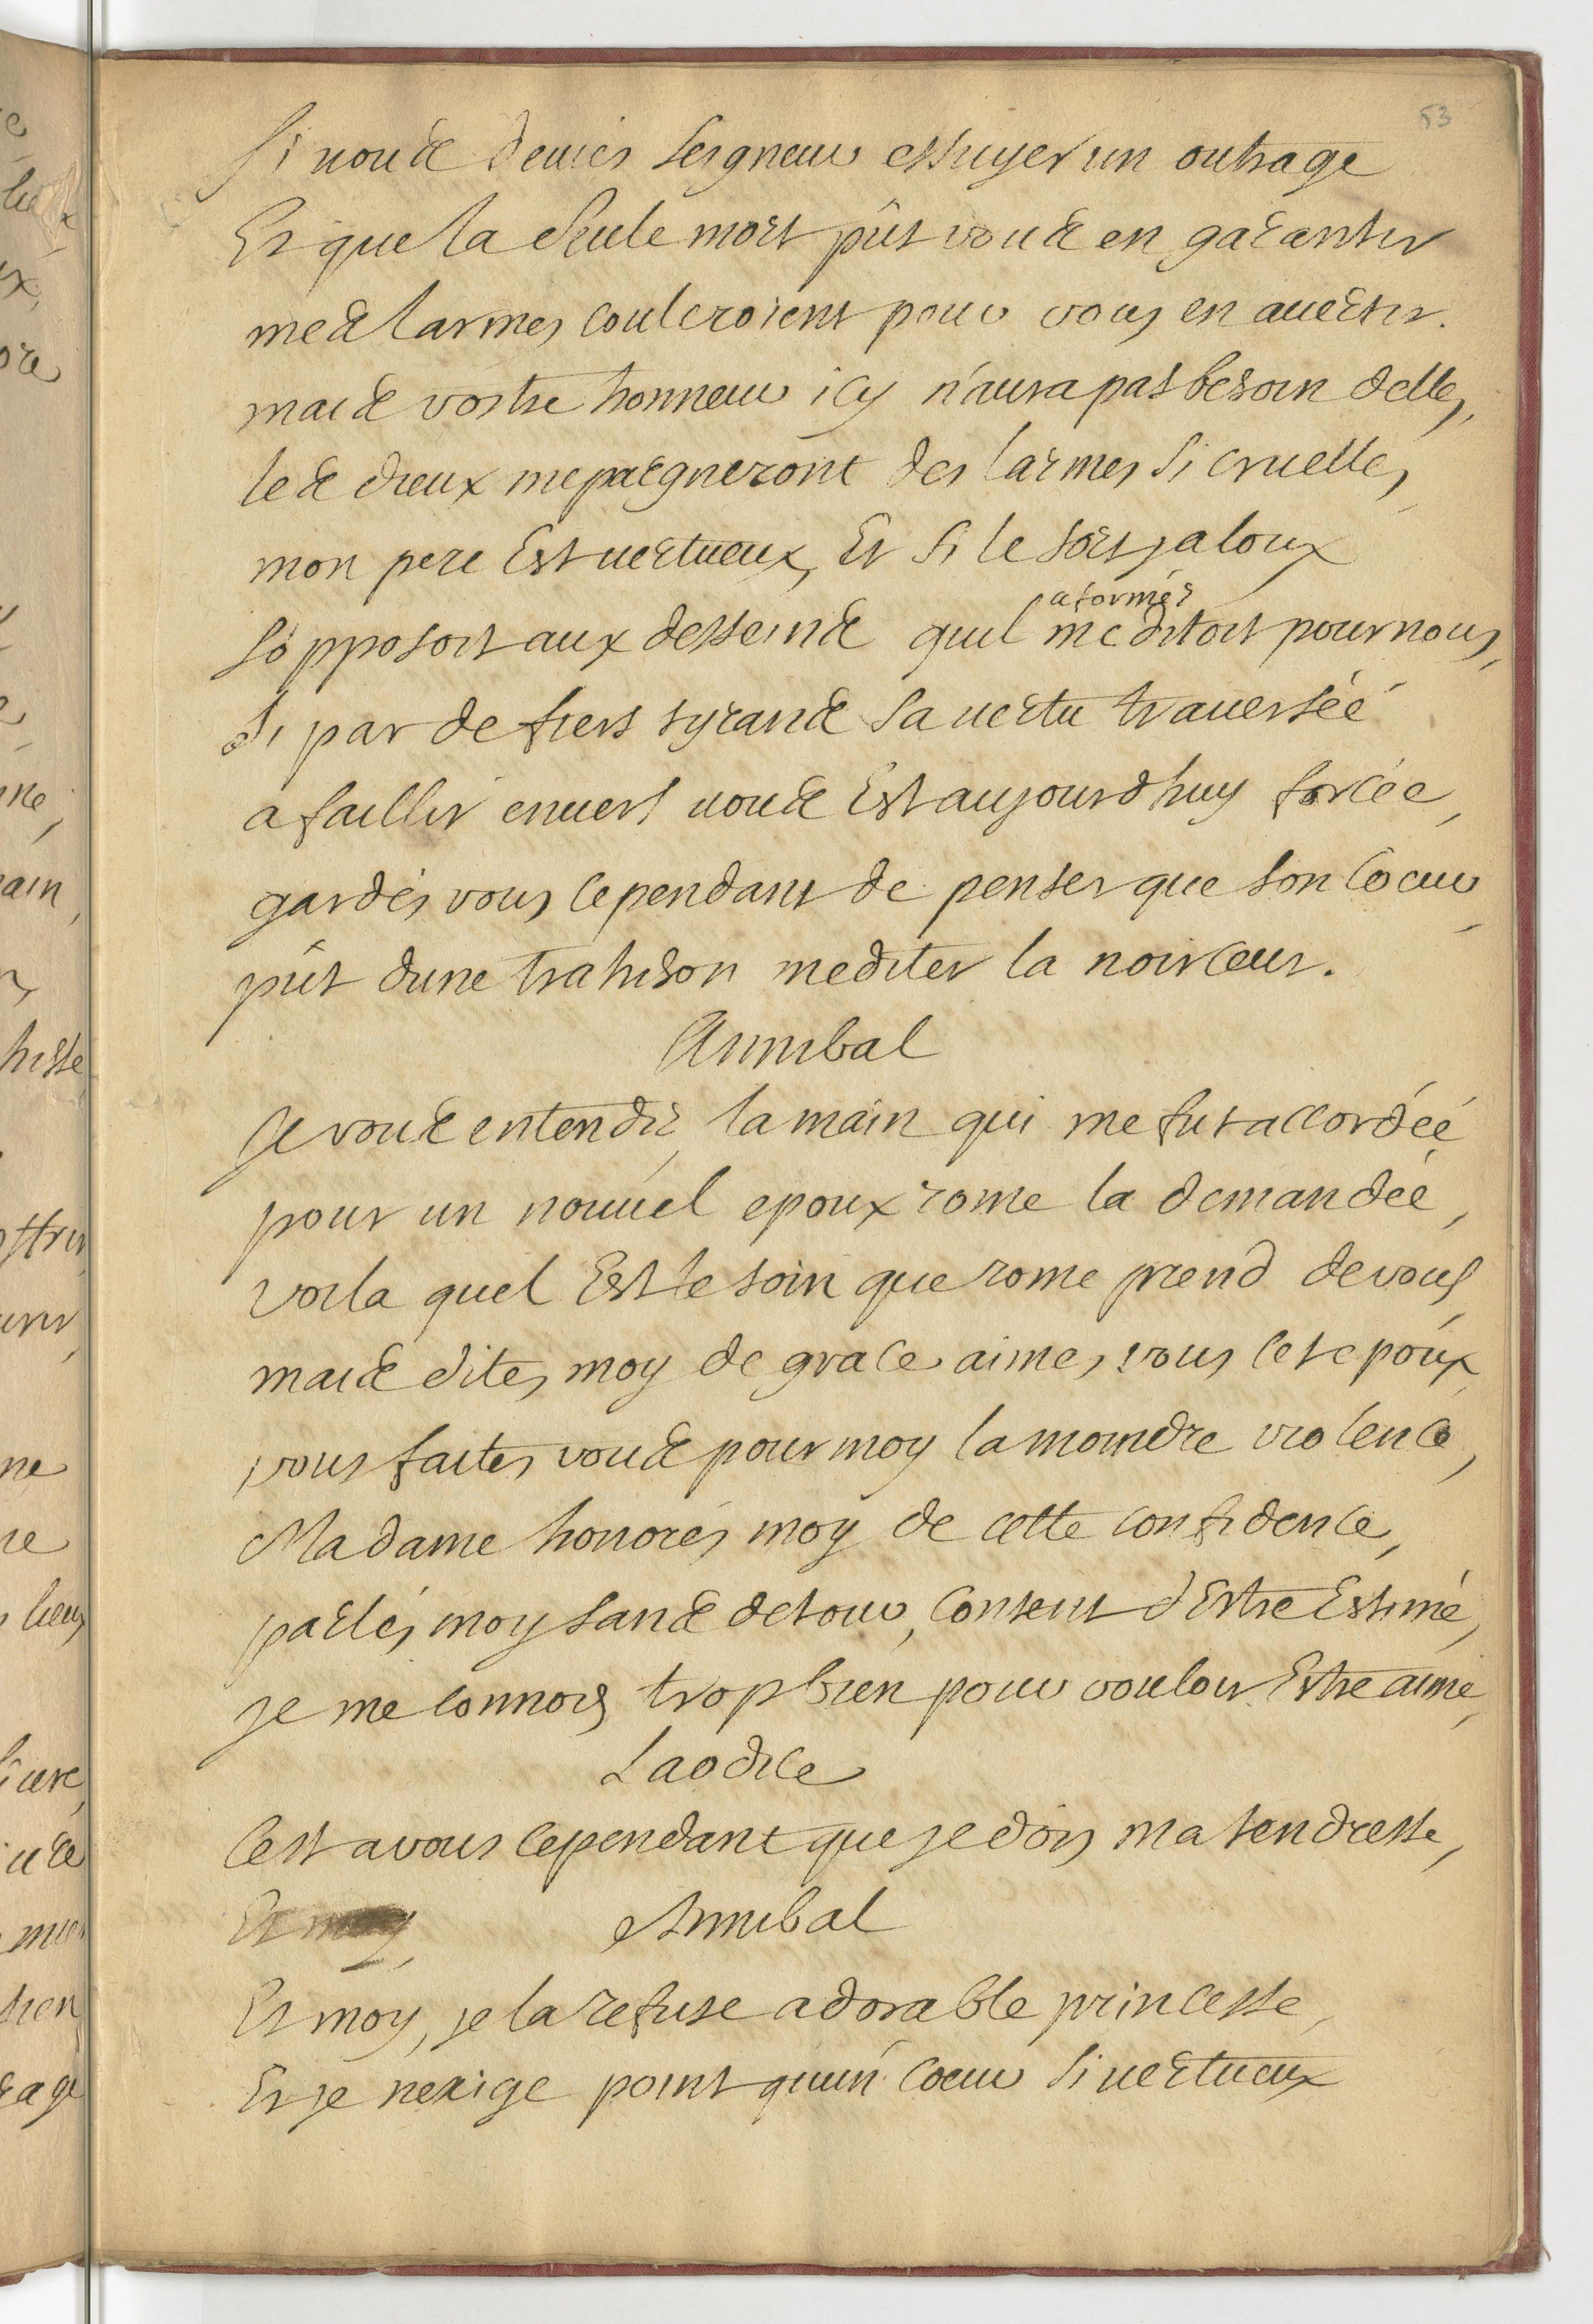 53
Si vous deviés Seigneur essuyer un outrage
Et que la Seule mort pût vous en garantir
mes larmes couleroient pour vous en avertir.
mais vostre honneur icy n'aura pas besoin delles,
les dieux mepargneront des larmes Si cruelles,
mon pere Est vertueux, Et Si le sort jaloux
a formés
Sopposoit aux desseins quil meditoit pour nous,
Si par de fiers tyrans Sa vertu traverséé
a faillir envers vous Est aujourdhuy forcée,
gardés vous cependant de penser que son Coeur
pût dune trahison mediter la noirceur.
Annibal
Je vous entends, la main qui me fut accordéé
pour un nouvel epoux rome la demandéé,
voila quel Est le soin que rome prend de vous,
mais dites moy de grace aimes vous cet epoux,
vous faites vous pour moy la moindre violence,
Madame honorés moy de cette confidence,
parlés moy sans detour, Content d'Estre Estimé,
je me connois trop bien pour vouloir Estre aimé,
Laodice
Cest a vous cependant que je dois ma tendresse,
Et moy,
Annibal
Et moy, je la refuse adorable princesse,
Et je nexige point quun Coeur Si vertueux